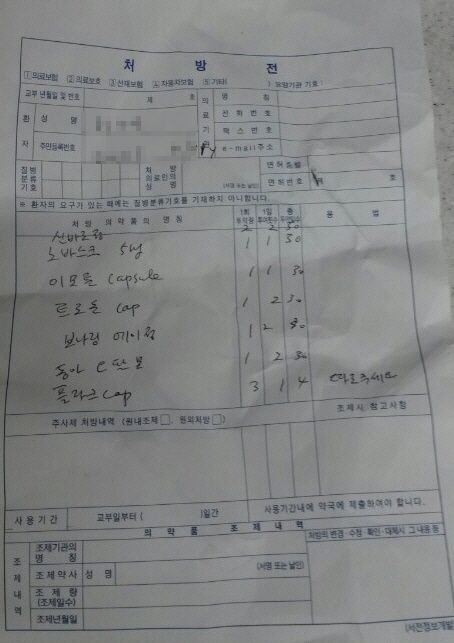 처 방 전
①의료보험 ②의료보호 ③산재보험 ④자동차보험 ⑤기타( ) 요양기관 기호:
교부 년월일 및 번호 제 호
의료기관
명 칭
전화번호
팩스번호
e-mail 주소
환자
성 명
주민등록번호
질병분류기호
처방의료인의성명
(서명 또는 날인)
면허종별
면허번호 제 호
※ 환자의 요구가 있는 때에는 질병분류기호를 기재하지 아니합니다.
처방 의약품의 명칭 1회투약량 1일투여횟수 총투약일수 용 법
신바로정 2 2 30
노바스크 5mg 1 1 30
이모튼 capsule 1 1 30
트로돈 cap 1 2 30
보나링 에이정 1 2 30
동아 1 2 30
cap 3 1 4 따로주세요
주사제 처방내역 (원내조제□, 원외처방□) 조제시 참고사항
사용기간 교부일부터 ( )일간 사용기간내에 약국에 제출하여야 합니다.
의약품 조제내역
조제내역
처방의 변경·수정·확인·대체시 그 내용 등
조제기관의 명칭
조제약사 성 명 (서명 또는 날인)
조제량 (조제일수)
조제년월일
(서전정보개발